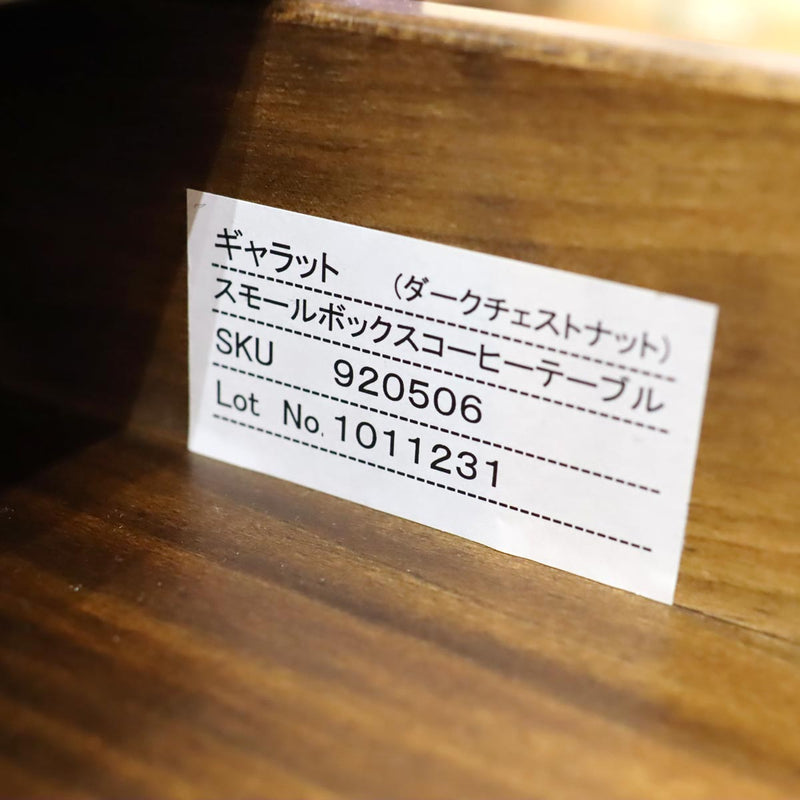 ギャラット (ダークチェストナット)
スモールボックスコーヒーテーブル
SKU 920506
Lot No. 1011231